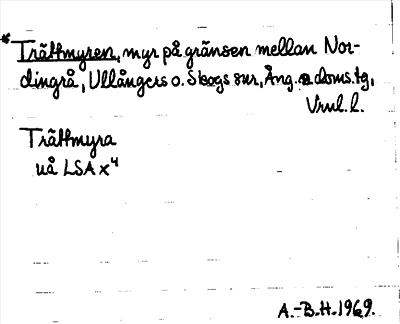 *Trättmyren, myr på gränsen mellan Nor-
dingrå, Ullångers o. Skogs snr, Ång. s doms.tg,
Vnrl. l.
Trättmyra
uå LSA x⁴
A.-B.H. 1969.